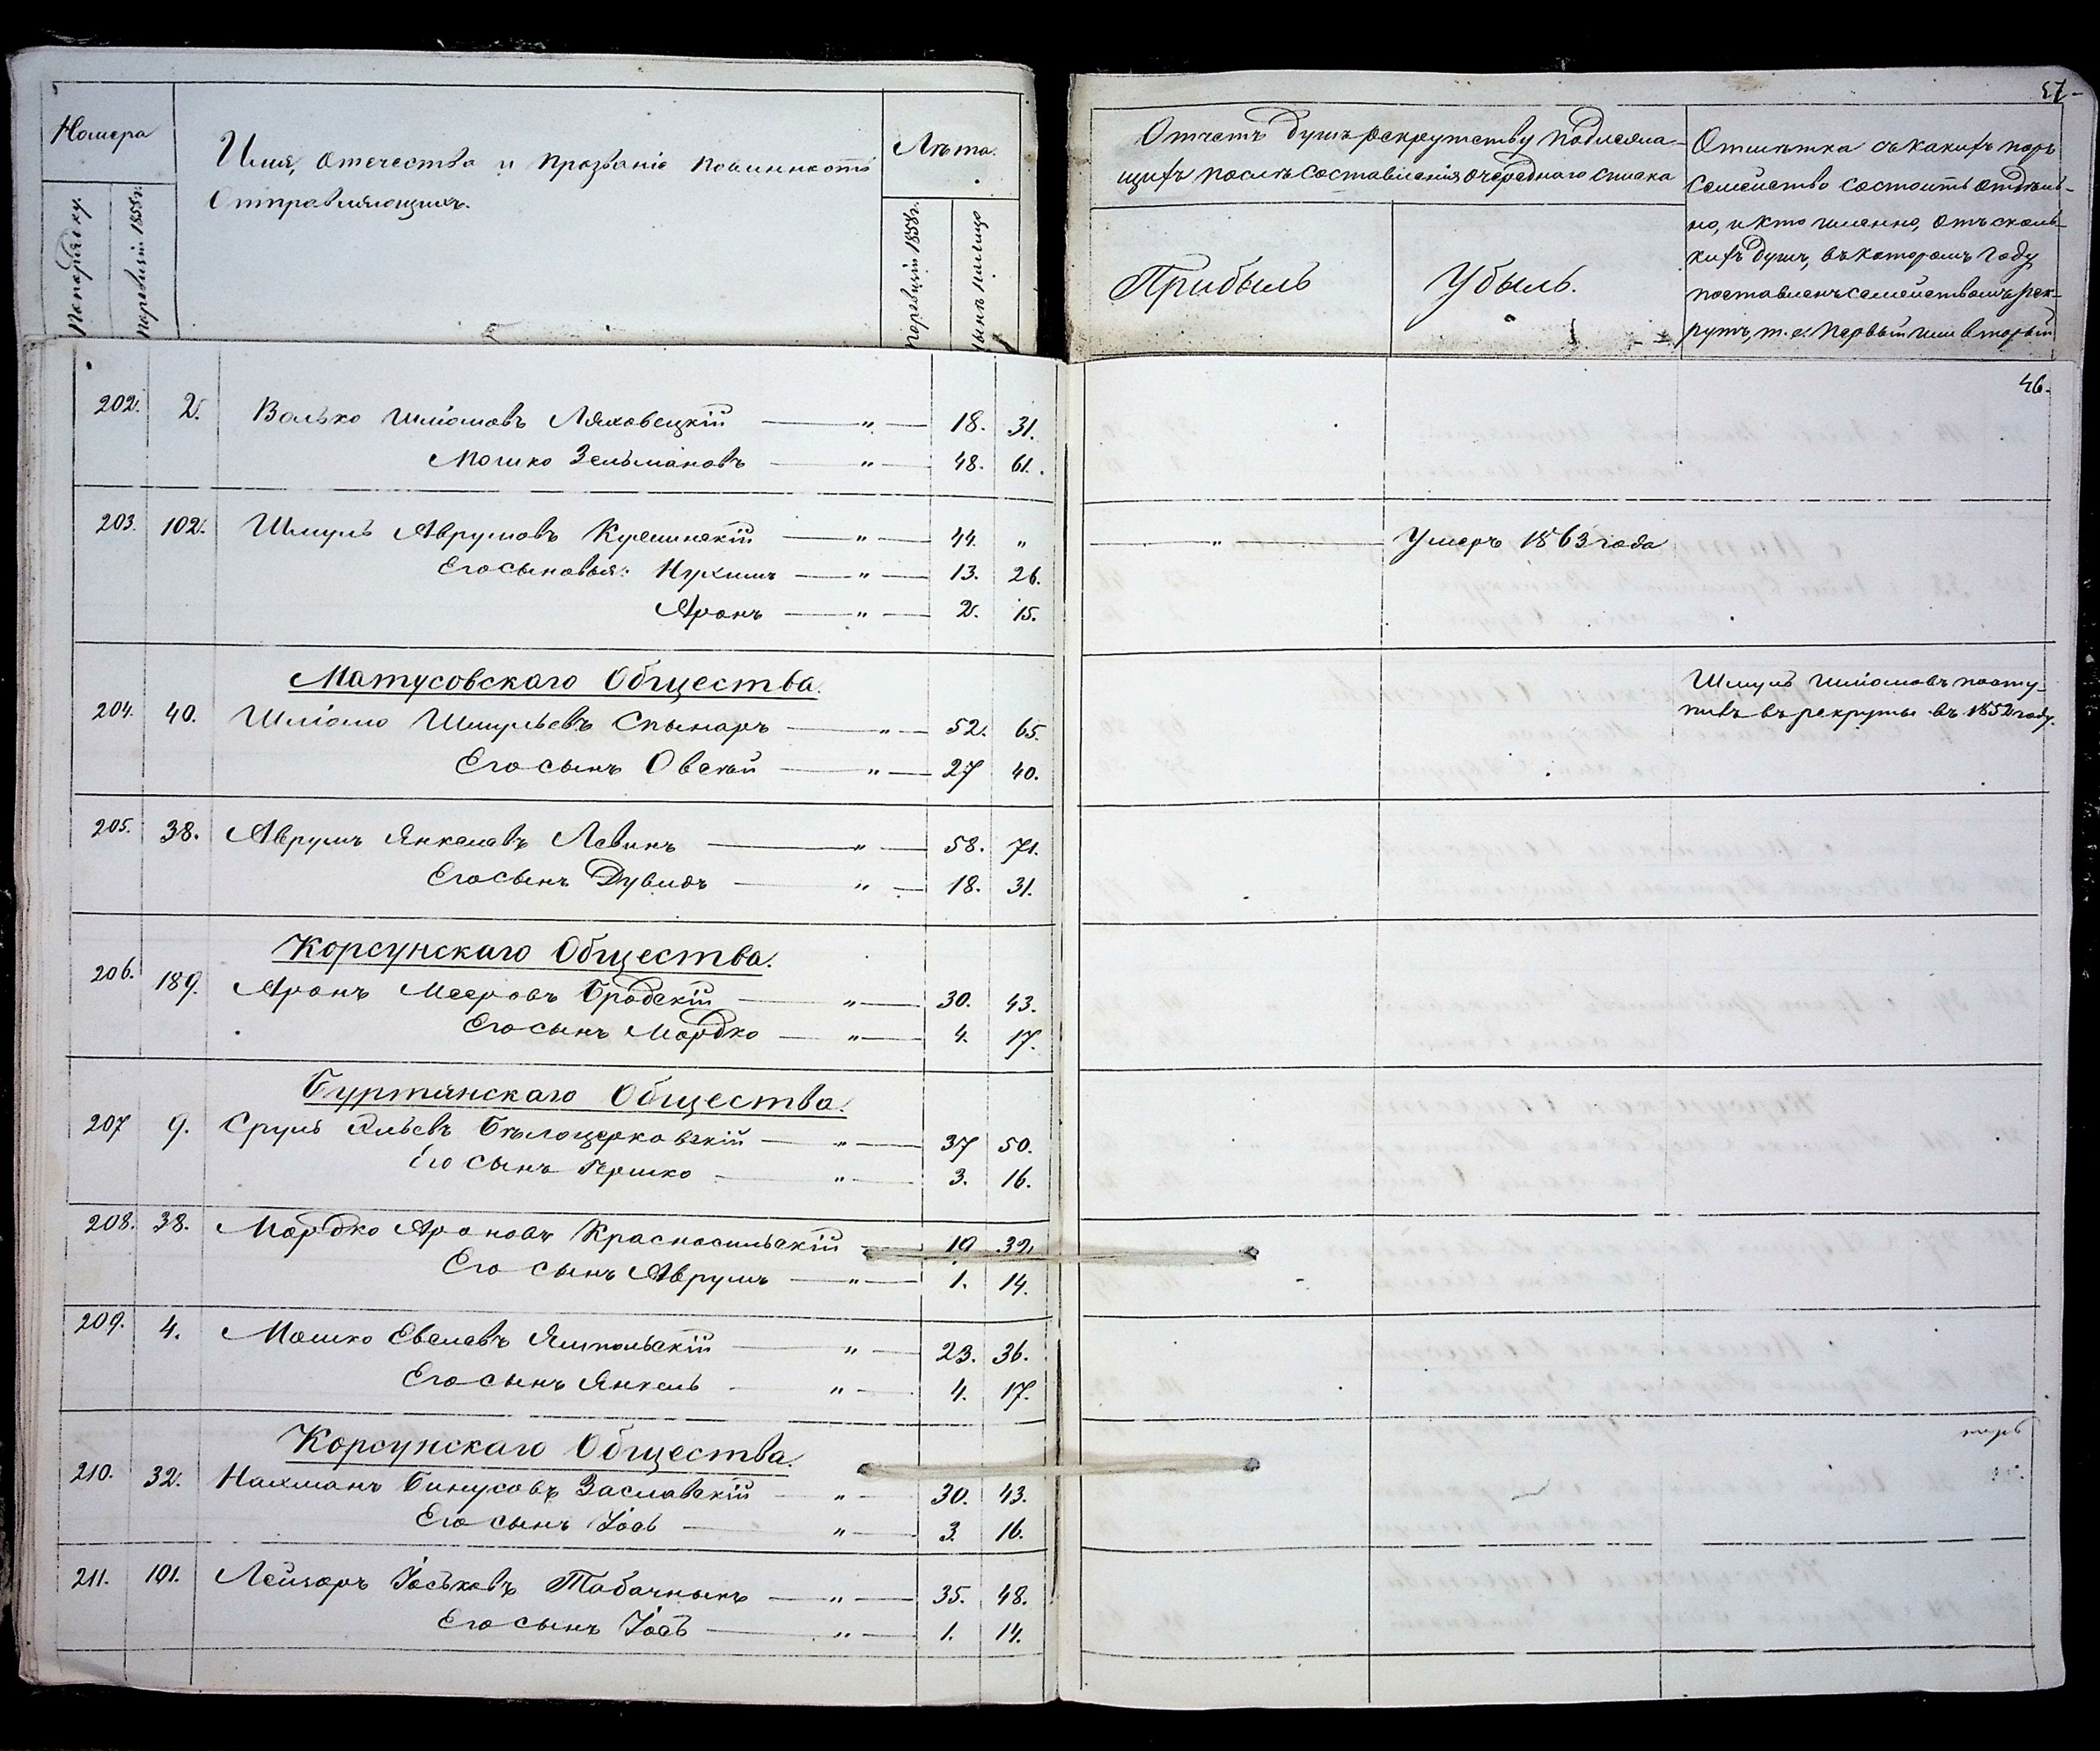 57.
Номера
Имя, отечество и прозваніе повинность
Отправляющихъ.
Лѣта.
По порядку.
По ревизіи 1858 г.
По ревизіи 1858 г.
нынѣ на лицо
Отчетъ душъ рекрутству подлежа-
щихъ послѣ составленія очереднаго списка
Прибыль
Убыль.
Отмѣтка съ какихъ поръ
Семейство состоитъ отдѣль-
но, и кто именно, отъ сколь-
кихъ душъ, въ которомъ году
поставленъ семействомъ рек-
рутъ, т. е. первый или вторый
46.
202. 2. Волько Шліомовъ Ляховецкій — " — 18. 31.
Мошко Зельмановъ — " — 48. 61.
203. 102. Шмуль Аврумовъ Кушинскій — " — 44. " — " — Умеръ 1863 года
Его сыновья: Нухимъ — " — 13. 26.
Аронъ — " — 2. 15.
Матусовскаго Общества.
204. 40. Шліомо Шмульевъ Спынаръ — " — 52. 65.
Шмуль Шліомовъ посту-
пивъ въ рекруты въ 1852 году.
Его сынъ Овсѣй — " — 27 40.
205. 38. Аврумъ Янкелевъ Левинъ — " — 58. 71.
Его сынъ Дувидъ — " — 18. 31.
Корсунскаго Общества.
206. 189. Аронъ Мееровъ Бродскій — " — 30. 43.
Его сынъ Мордко — " — 4. 17.
Буртянскаго Общества.
207 9. Сруль Эльевъ Бѣлоцерковскій — " — 37 50.
Его сынъ Гершко — " — 3. 16.
208. 38. Мордко Ароновъ Красносильскій — 19 32.
Его сынъ Аврумъ — " — 1. 14.
209. 4. Мошко Евелевъ Ямпольскій — " — 23. 36.
Его сынъ Янкель — " — 4. 17.
Корсунскаго Общества.
210. 32. Нахманъ Бинусовъ Заславскій — " — 30. 43.
Его сынъ Іось — " — 3. 16.
211. 101. Лейзоръ Іоськовъ Табачныкъ — " — 35. 48.
Его сынъ Іось — " — 1. 14.